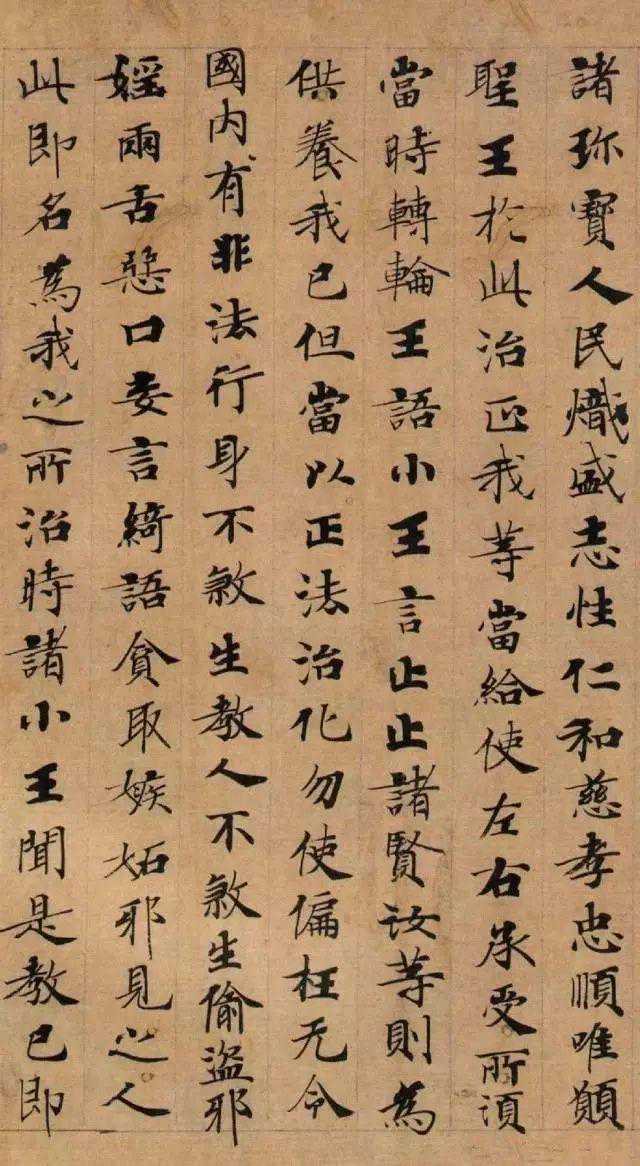 諸珎寳人民熾盛志性仁和慈孝忠順唯願
聖王於此治正我等當給使左右承受所須
當時轉輪王語小王言止止諸賢汝等則為
供養我已但當以正法治化勿使偏枉无令
國内有非法行身不煞生教人不煞生偷盗邪
婬兩舌惡口妄言綺語貪取嫉妬邪見之人
此即名為我之所治時諸小王聞是教已即